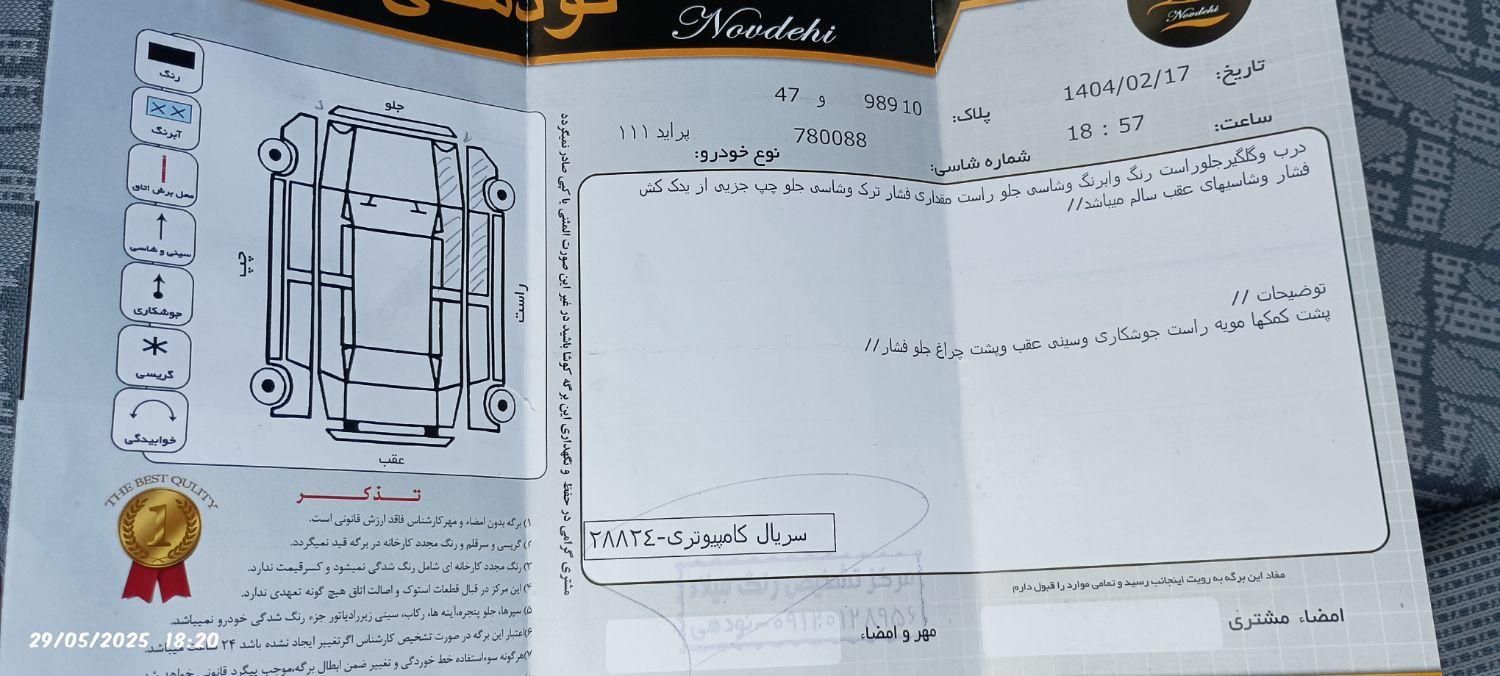 Novdehi
Novdehi
تاریخ: 1404/02/17
ساعت: 18 : 57
پلاک: 98910 و 47
شماره شاسی: 780088
نوع خودرو: پراید ۱۱۱
درب وگلگیرجلوراست رنگ وابرنگ وشاسی جلو راست مقداری فشار ترک وشاسی جلو چپ جزیی از یدک کش
فشار وشاسیهای عقب سالم میباشد//
توضیحات //
پشت کمکها مویه راست جوشکاری وسینی عقب وپشت چراغ جلو فشار//
سریال کامپیوتری-۲۸۸۲۴
مفاد این برگه به رویت اینجانب رسید و تمامی موارد را قبول دارم
امضاء مشتری
مهر و امضاء
مرکز تشخیص رنگ
مشتری گرامی در حفظ و نگهداری این برگه کوشا باشید در غیر این صورت المثنی یا کپی صادر نمیگردد
رنگ
آبرنگ
محل برش اتاق
سینی و شاسی
جوشکاری
گریسی
خوابیدگی
جلو
چپ
راست
عقب
THE BEST QULITY
1
تذکر
۱) برگه بدون امضاء و مهر کارشناس فاقد ارزش قانونی است.
۲) گریسی و سرقلم و رنگ مجدد کارخانه در برگه قید نمیگردد.
۳) رنگ مجدد کارخانه ای شامل رنگ شدگی نمیشود و کسر قیمت ندارد.
۴) این مرکز در قبال قطعات استوک و اصالت اتاق هیچ گونه تعهدی ندارد.
۵) سپرها، جلو پنجره،آینه ها، رکاب، سینی زیررادیاتور جزء رنگ شدگی خودرو نمیباشد.
۶) اعتبار این برگه در صورت تشخیص کارشناس اگر تغییر ایجاد نشده باشد ۲۴ ساعت میباشد.
۷) هر گونه سوء استفاده خط خوردگی و تغییر ضمن ابطال برگه،موجب پیگرد قانونی خواهد شد
29/05/2025 18:20